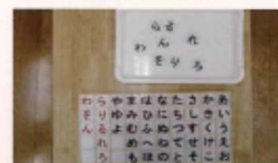 らる
わんれ
をりろ
あいうえお
かきくけこ
さしすせそ
たちつてと
なにぬねの
はひふへほ
まみむめも
やゆよ
らりるれろ
わをん